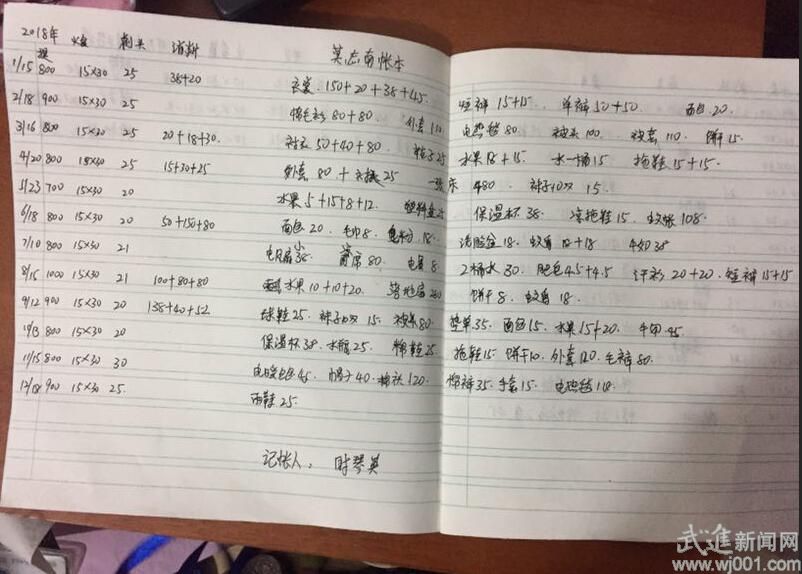 2018年 火食 剃头 消耗 莫志南帐本
提
1/15 800 15×30 25 38+20 衣裳.150+20+38+45.
2/18 900 15×30 25 棉毛衫 80+80 外套 110 短裤 15+15. 单裤 50+50. 面包 20.
3/16 800 15×30 25 20+18+30. 衬衣 50+40+80. 25 电热毯 80. 被头 100. 被套 110. 饼 15.
4/20 800 15×30 25 15+30+25 外套 80+ 25 一张床 480. 水果 18+15. 水一桶 15. 拖鞋 15+15.
5/23 700 15×30 20 水果 5+15+8+12. 塑料盆 袜子10双 15.
6/18 800 15×30 20 50+150+80 面包 20. 毛巾 8. 18. 保温杯 38. 凉拖鞋 15. 蚊帐 108.
7/10 800 15×30 21 电风扇 38. 席 80. 8 洗脸盆 18. 蚊香 +18.
8/15 1000 15×30 21 100+80+80 水果 10+10+20. 2桶水 30. 肥皂 4.5+4.5 汗衫 20+20. 短裤 15+15
9/12 900 15×30 20 138+40+52 球鞋 25. 袜子10双 15. 被头 80. 饼干 8. 蚊香 18.
10/13 800 15×30 20 保温杯 38. 水瓶 25. 棉鞋 25. 垫单 35. 面包 15. 水果 15+20. 牛奶 45
11/15 800 15×30 30 拖鞋 15. 饼干 10. 外套 120. 毛裤 80.
12/18 900 15×30 25. 电暖 45. 帽子 40. 棉袄 120. 棉裤 35. 手套 15. 电热毯 118.
雨鞋 25.
记帐人: 时琴英
武進新闻网
www.wj001.com